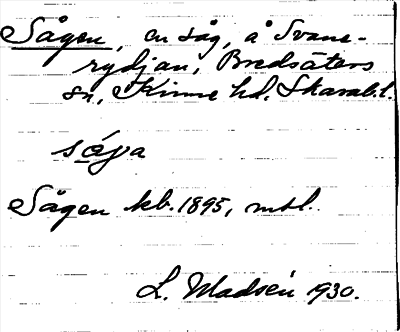 Sågen, en såg, å Svane-
rydjan, Bredsäters
sn, Kinne hd. Skarab.l.
såga
Sågen kb. 1895, mtl.
L. Madsén 1930.